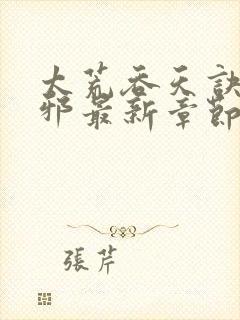 大荒吞天訣
邪最新章節
張芹